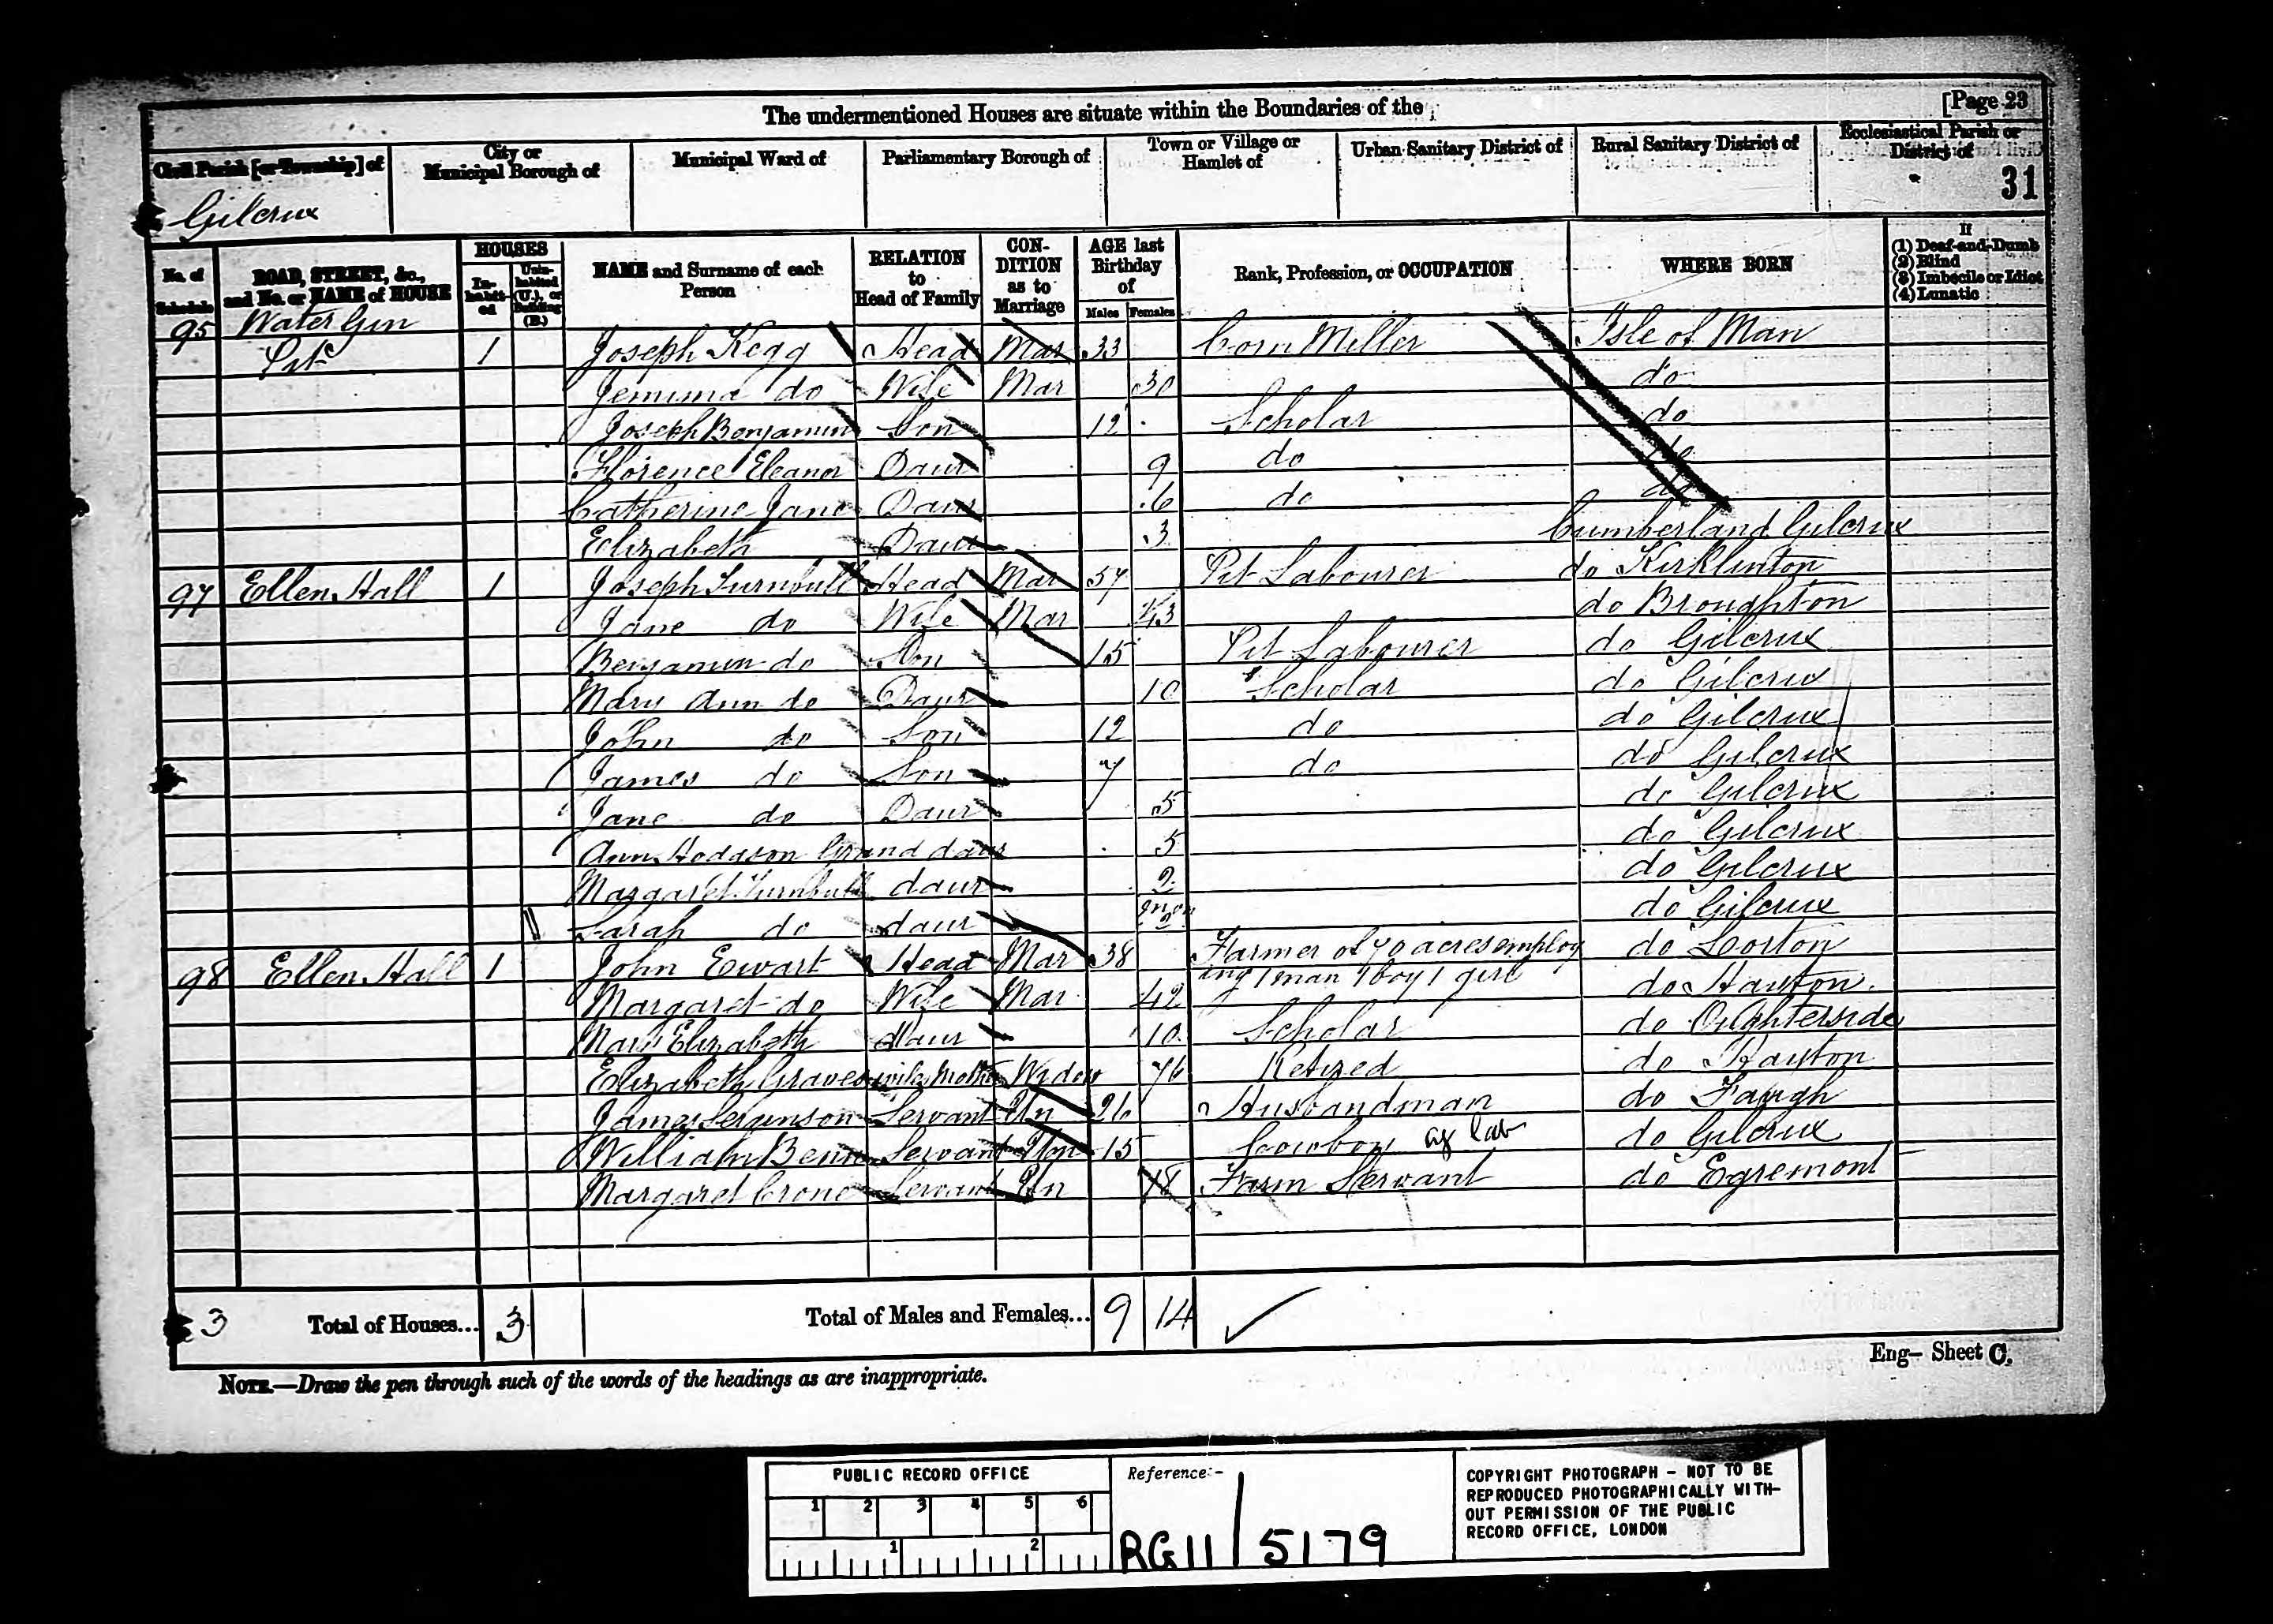 The undermentioned Houses are situate within the Boundaries of the
[Page 23
Civil Parish [or Township] of
City or Municipal Borough of
Municipal Ward of
Parliamentary Borough of
Town or Village or Hamlet of
Urban Sanitary District of
Rural Sanitary District of
Ecclesiastical Parish or District of
Gilcrux
31
No. of Schedule
ROAD, STREET, &c., and No. or NAME of HOUSE
HOUSES
In-habit-ed
Unin-habited (U.), or Building (B.)
NAME and Surname of each Person
RELATION to Head of Family
CON-DITION as to Marriage
AGE last Birthday of
Males Females
Rank, Profession, or OCCUPATION
WHERE BORN
If
(1) Deaf-and-Dumb
(2) Blind
(3) Imbecile or Idiot
(4) Lunatic
95 Water Gin
Pit 1 Joseph Kegg Head Mar 33 Corn Miller Isle of Man
Jemima do Wife Mar 30 do
Joseph Benjamin Son 12 Scholar do
Florence Eleanor Daur 9 do do
Catherine Jane Daur 6 do do
Elizabeth Daur 3 Cumberland Gilcrux
97 Ellen Hall 1 Joseph Turnbull Head Mar 57 Pit Labourer do Kirklinton
Jane do Wife Mar 43 do Broughton
Benjamin do Son 15 Pit Labourer do Gilcrux
Mary Ann do Daur 10 Scholar do Gilcrux
John do Son 12 do do Gilcrux
James do Son 7 do do Gilcrux
Jane do Daur 5 do Gilcrux
Ann Hodgson Grand daur 5 do Gilcrux
Margaret Turnbull daur 2 do Gilcrux
Sarah do daur do Gilcrux
98 Ellen Hall 1 John Ewart Head Mar 38 Farmer of 70 acres employ do Lorton
ing 1 man 1 boy 1 girl
Margaret do Wife Mar 42 do Hayton
Mary Elizabeth daur 10 Scholar do Oughterside
Elizabeth Graves wifes Mother Widow 76 Retired do Hayton
James Servant Un 26 Husbandman do Faugh
William Servant Un 15 Cowboy ag lab do Gilcrux
Margaret Crone Servant Un 18 Farm Servant do Egremont
3 Total of Houses... 3 Total of Males and Females... 9 14
Eng— Sheet C.
NOTE.—Draw the pen through such of the words of the headings as are inappropriate.
PUBLIC RECORD OFFICE
1 2 3 4 5 6
1 2
Reference:-
RG 11 / 5179
COPYRIGHT PHOTOGRAPH - NOT TO BE
REPRODUCED PHOTOGRAPHICALLY WITH-
OUT PERMISSION OF THE PUBLIC
RECORD OFFICE, LONDON